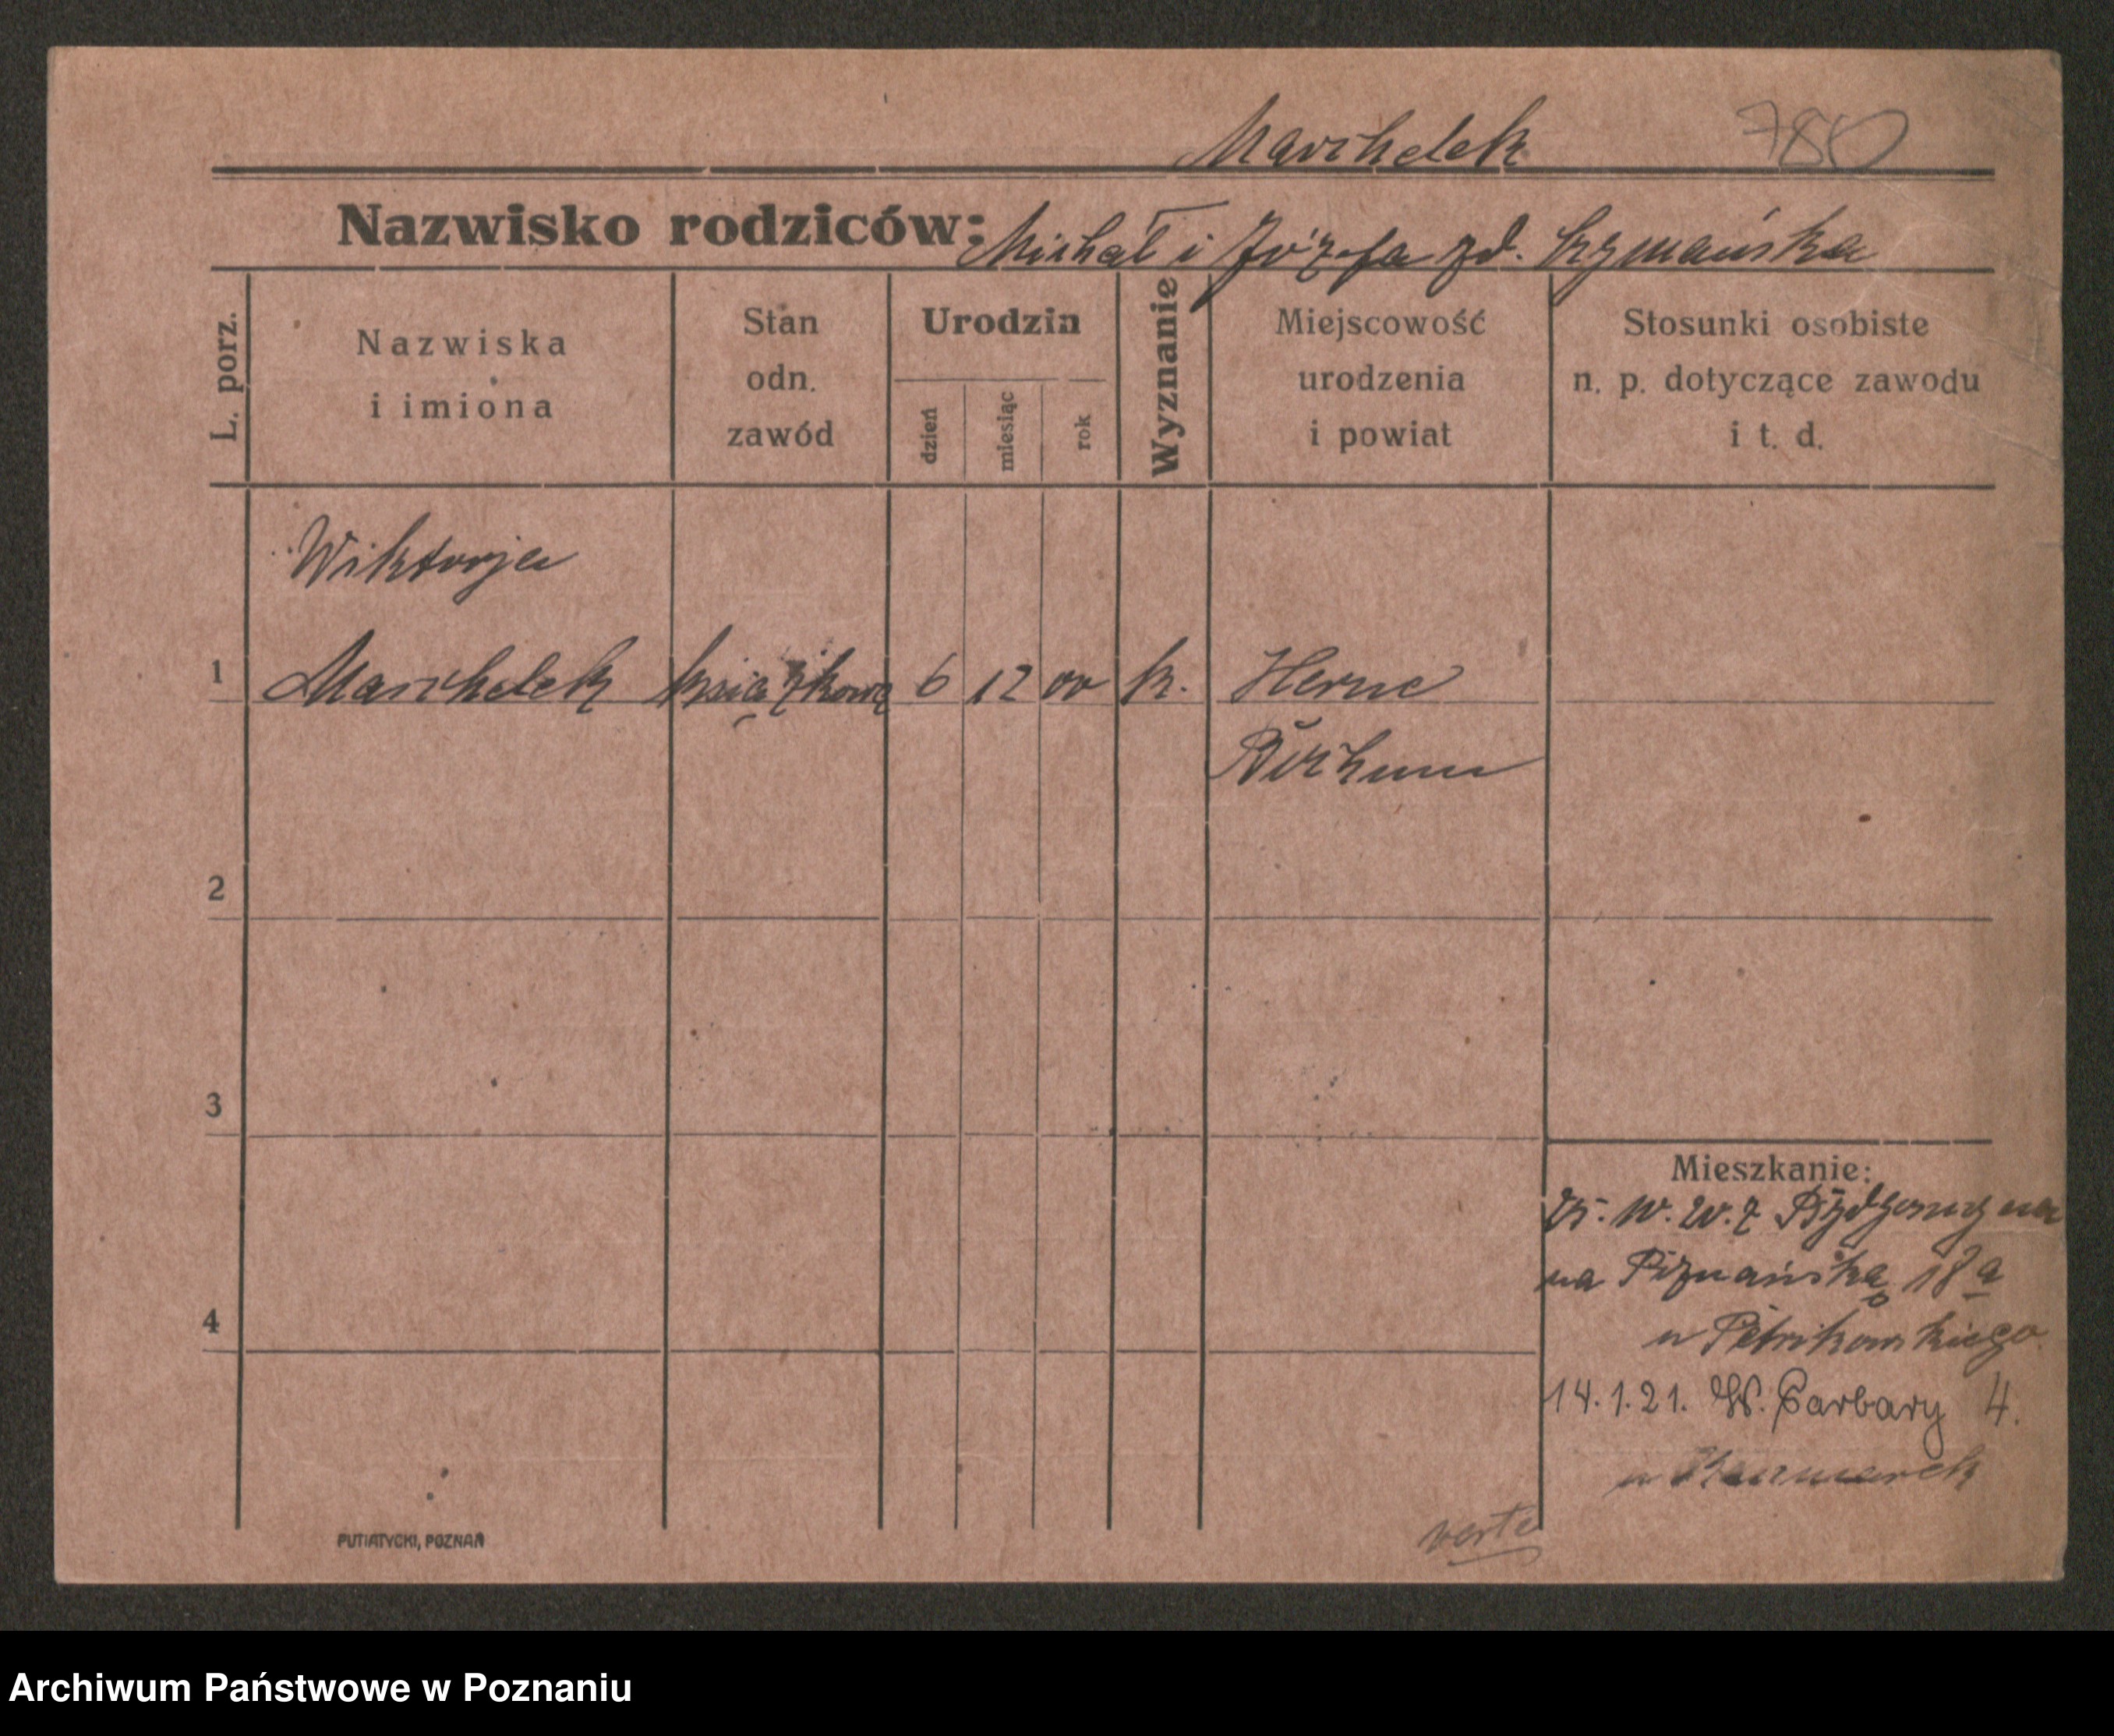 Marchelek 780
Nazwisko rodziców: Michał i Józefa zd. Szymańska
L. porz.
Nazwiska
i imiona
Stan
odn.
zawód
Urodzin
dzień
miesiąc
rok
Wyznanie
Miejscowość
urodzenia
i powiat
Stosunki osobiste
n. p. dotyczące zawodu
i t. d.
Wiktorja
1 Marchelek książkowa 6 12 00 k. Herne
Bochum
2
3
4
Mieszkanie:
z Bydgoszczy
na Poznańska 18a
u Petrikowskiego
14.1.21. W. Garbary 4.
u Kaczmarek
verte
PUTIATYCKI, POZNAŃ
Archiwum Państwowe w Poznaniu